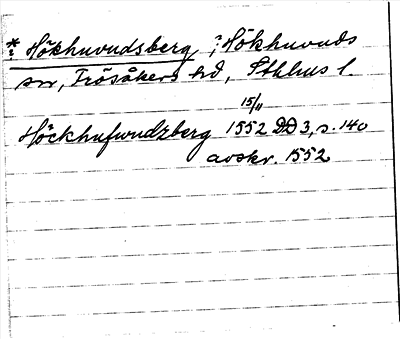 * : Hökhuvudsberg, i Hökhuvuds
sn, Frösåkers hd, Sthlms l.
15/11
Höckhufwudzberg 1552 DD 3, s. 140
avskr. 1552